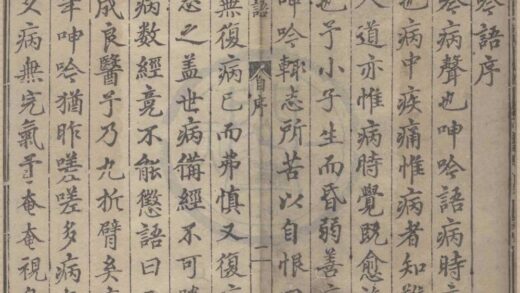 吟語序
吟病聲也呻吟語病時
也病中疾痛惟病者知難
人道亦惟病時覺既愈
也予小子生而昏弱善
呻吟輒志所苦以自恨曰
語 自序 二
無復病已而弗慎又復
志之蓋世病備經不可
病数經竟不能懲語曰
成良醫予乃九折臂矣
年呻吟猶昨嗟嗟多病
久病無完氣予奄奄視